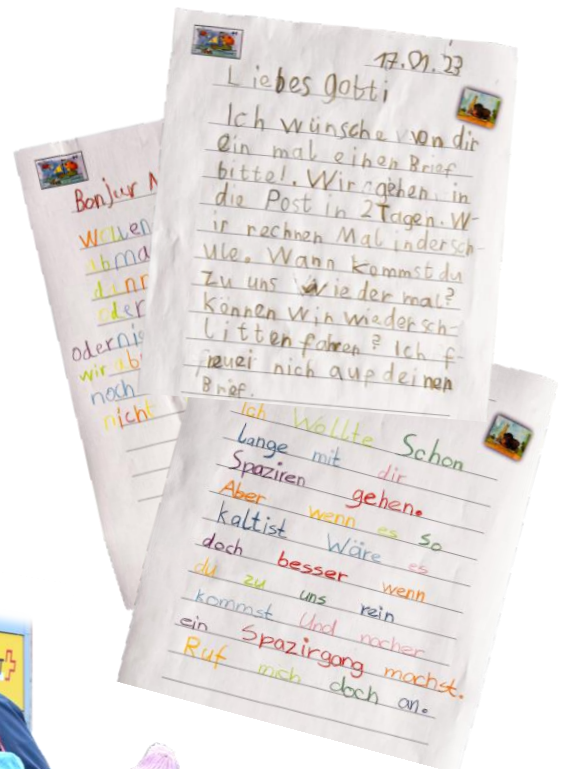 17.01.23
Liebes gotti
Ich wünsche von dir
ein mal einen Brief
bitte!. Wir gehen in
die Post in 2 Tagen. W-
ir rechnen Mal in der sch-
ule. Wann kommst du
zu uns wieder mal?
können win wieder sch-
litten fahren? Ich f-
reuei nich auf deinen
Brief.
Bonjur
wollen
abma
dann
oder
odernie
wir ab
noch
nicht
Ich Wollte Schon
lange mit dir
Spaziren gehen.
Aber wenn es so
kaltist Wäre es
doch besser wenn
du zu uns rein
kommst Und nacher
ein Spazirgang machst.
Ruf mich doch an.